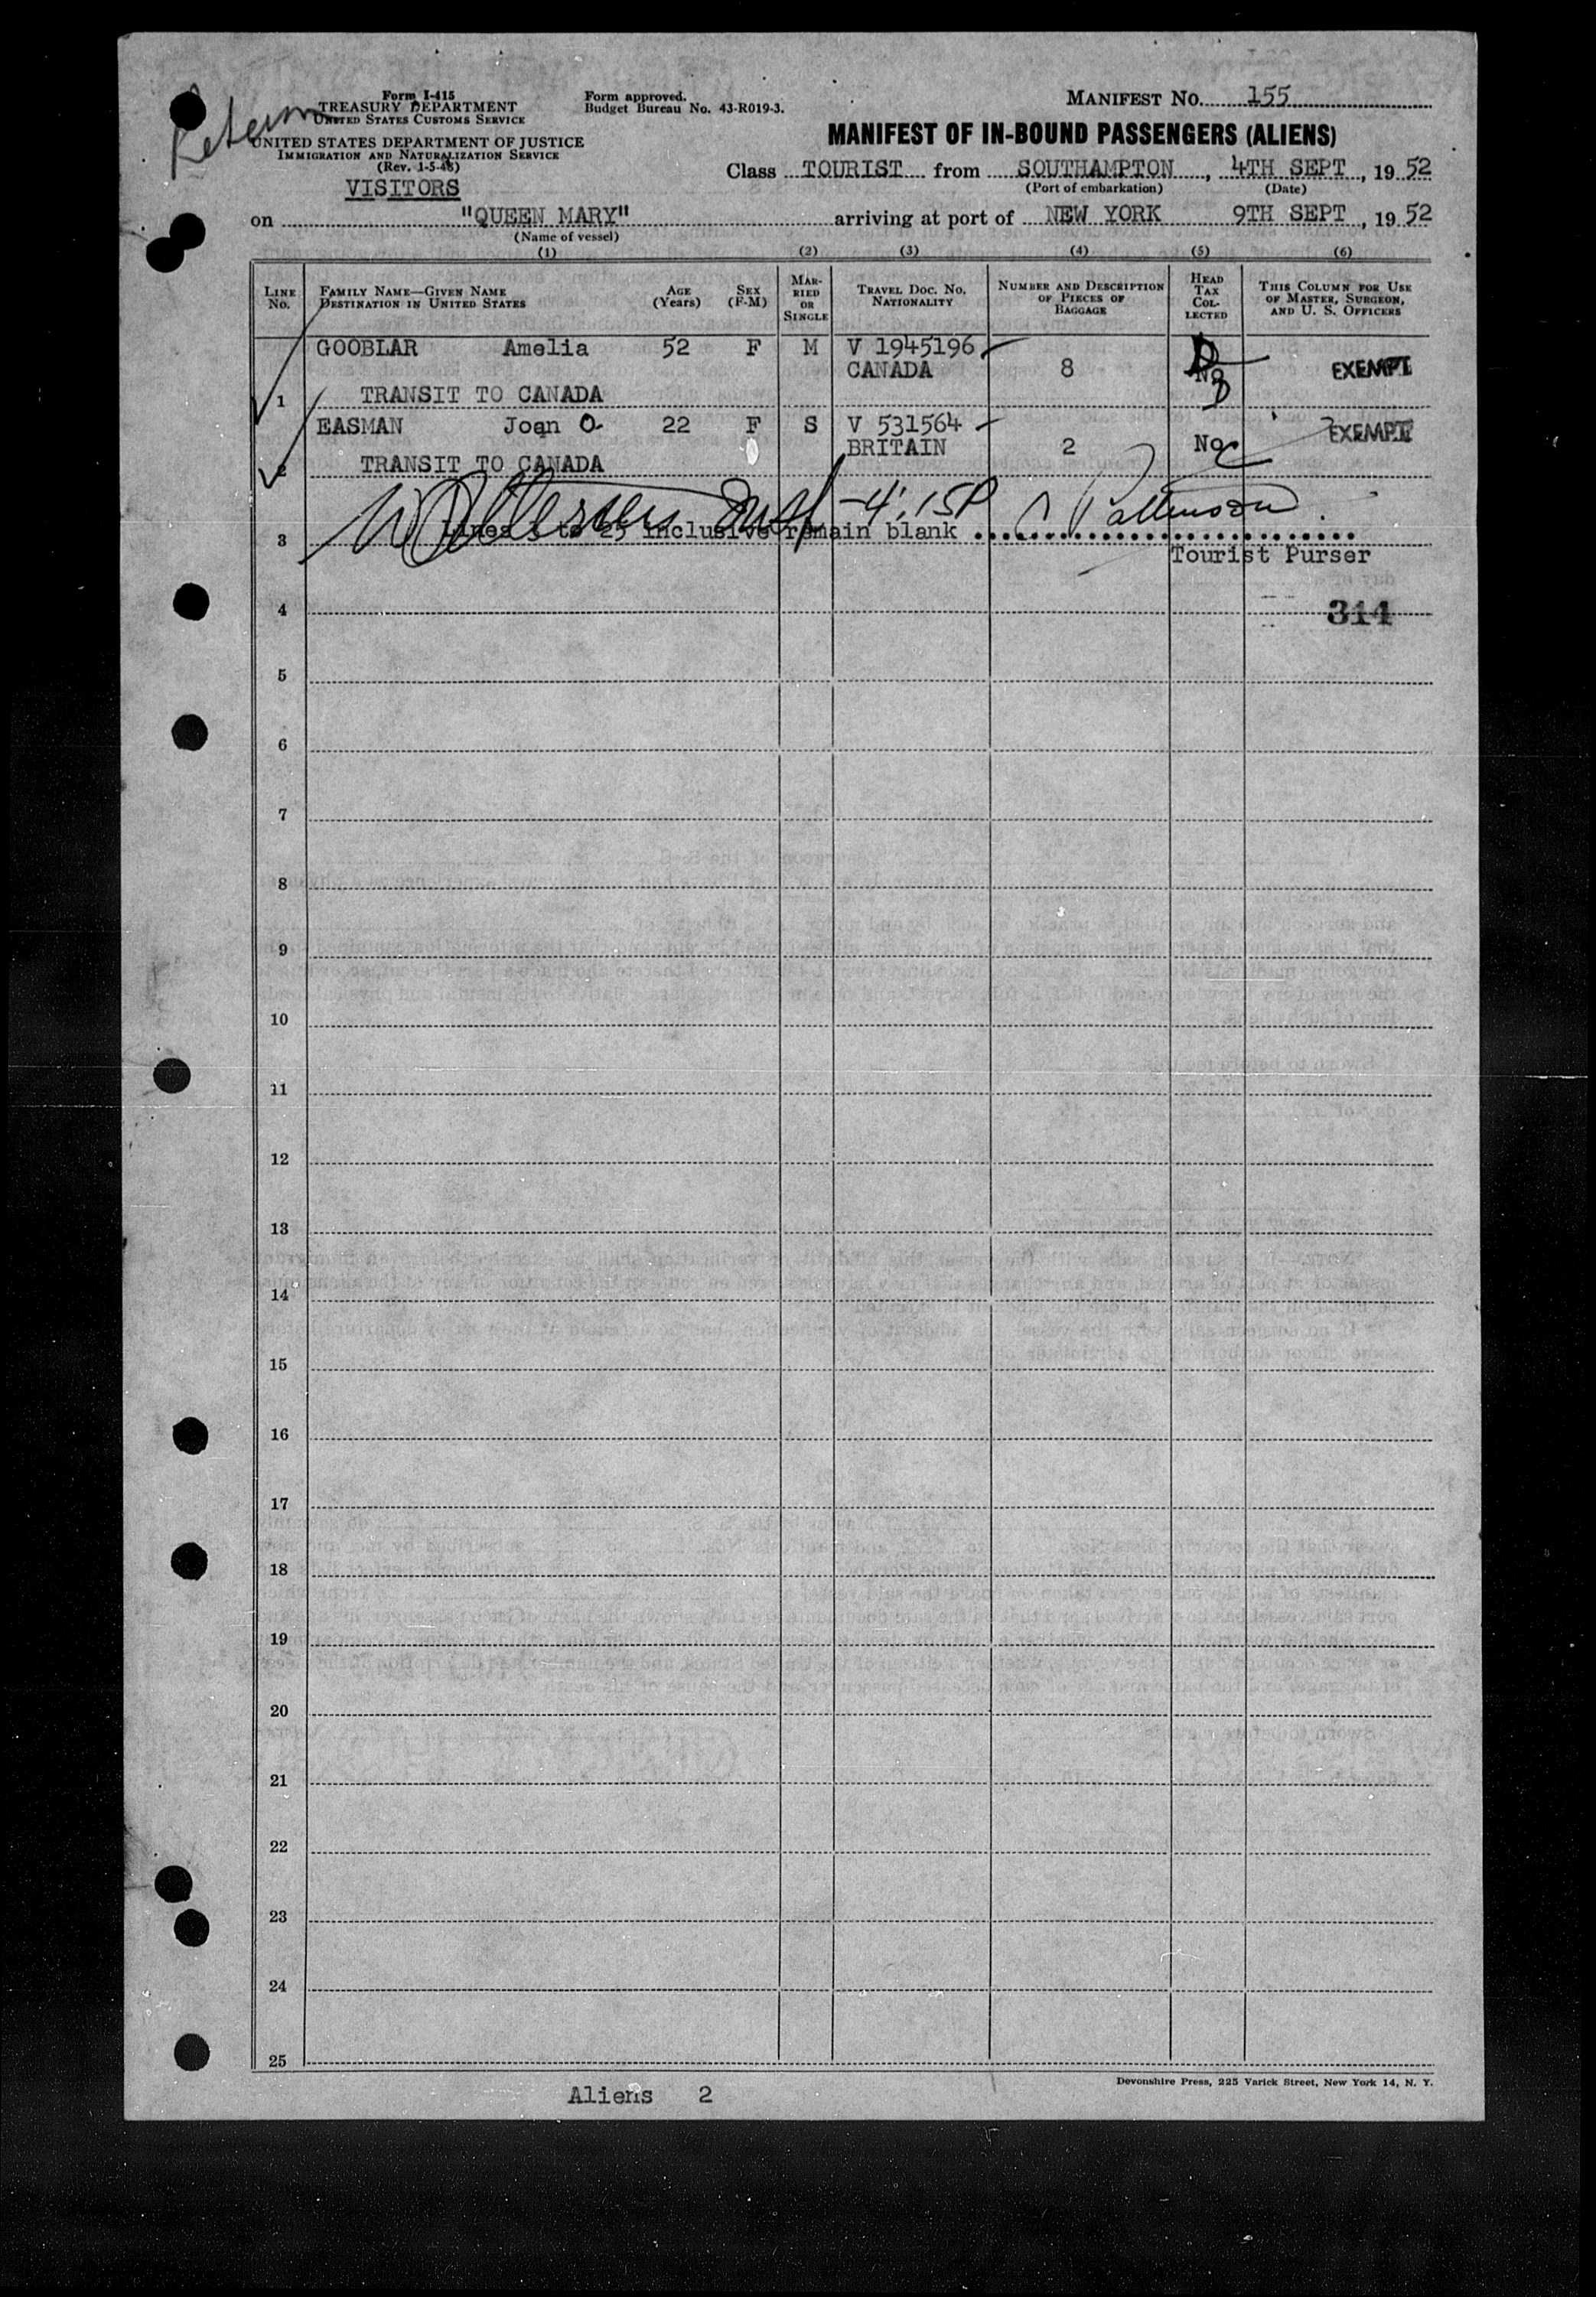 Form I-415
TREASURY DEPARTMENT
UNITED STATES CUSTOMS SERVICE
UNITED STATES DEPARTMENT OF JUSTICE
IMMIGRATION AND NATURALIZATION SERVICE
(Rev. 1-5-48)
VISITORS
Form approved.
Budget Bureau No. 43-R019-3.
MANIFEST NO. 155
MANIFEST OF IN-BOUND PASSENGERS (ALIENS)
Class TOURIST from SOUTHAMPTON, 4TH SEPT, 19 52
(Port of embarkation) (Date)
on "QUEEN MARY" arriving at port of NEW YORK 9TH SEPT, 19 52
(Name of vessel)
(1) (2) (3) (4) (5) (6)
LINE NO. FAMILY NAME—GIVEN NAME DESTINATION IN UNITED STATES AGE (Years) SEX (F-M) MARRIED OR SINGLE TRAVEL DOC. NO. NATIONALITY NUMBER AND DESCRIPTION OF PIECES OF BAGGAGE HEAD TAX COLLECTED THIS COLUMN FOR USE OF MASTER, SURGEON, AND U. S. OFFICERS
GOOBLAR Amelia 52 F M V 1945196
CANADA 8 No EXEMPT
1 TRANSIT TO CANADA
EASMAN Joan O 22 F S V 531564 EXEMPT
BRITAIN 2 No C
2 TRANSIT TO CANADA
4:15P
3 Lines 3 to 25 inclusive remain blank
Tourist Purser
4 314
5
6
7
8
9
10
11
12
13
14
15
16
17
18
19
20
21
22
23
24
25
Devonshire Press, 225 Varick Street, New York 14, N. Y.
Aliens 2